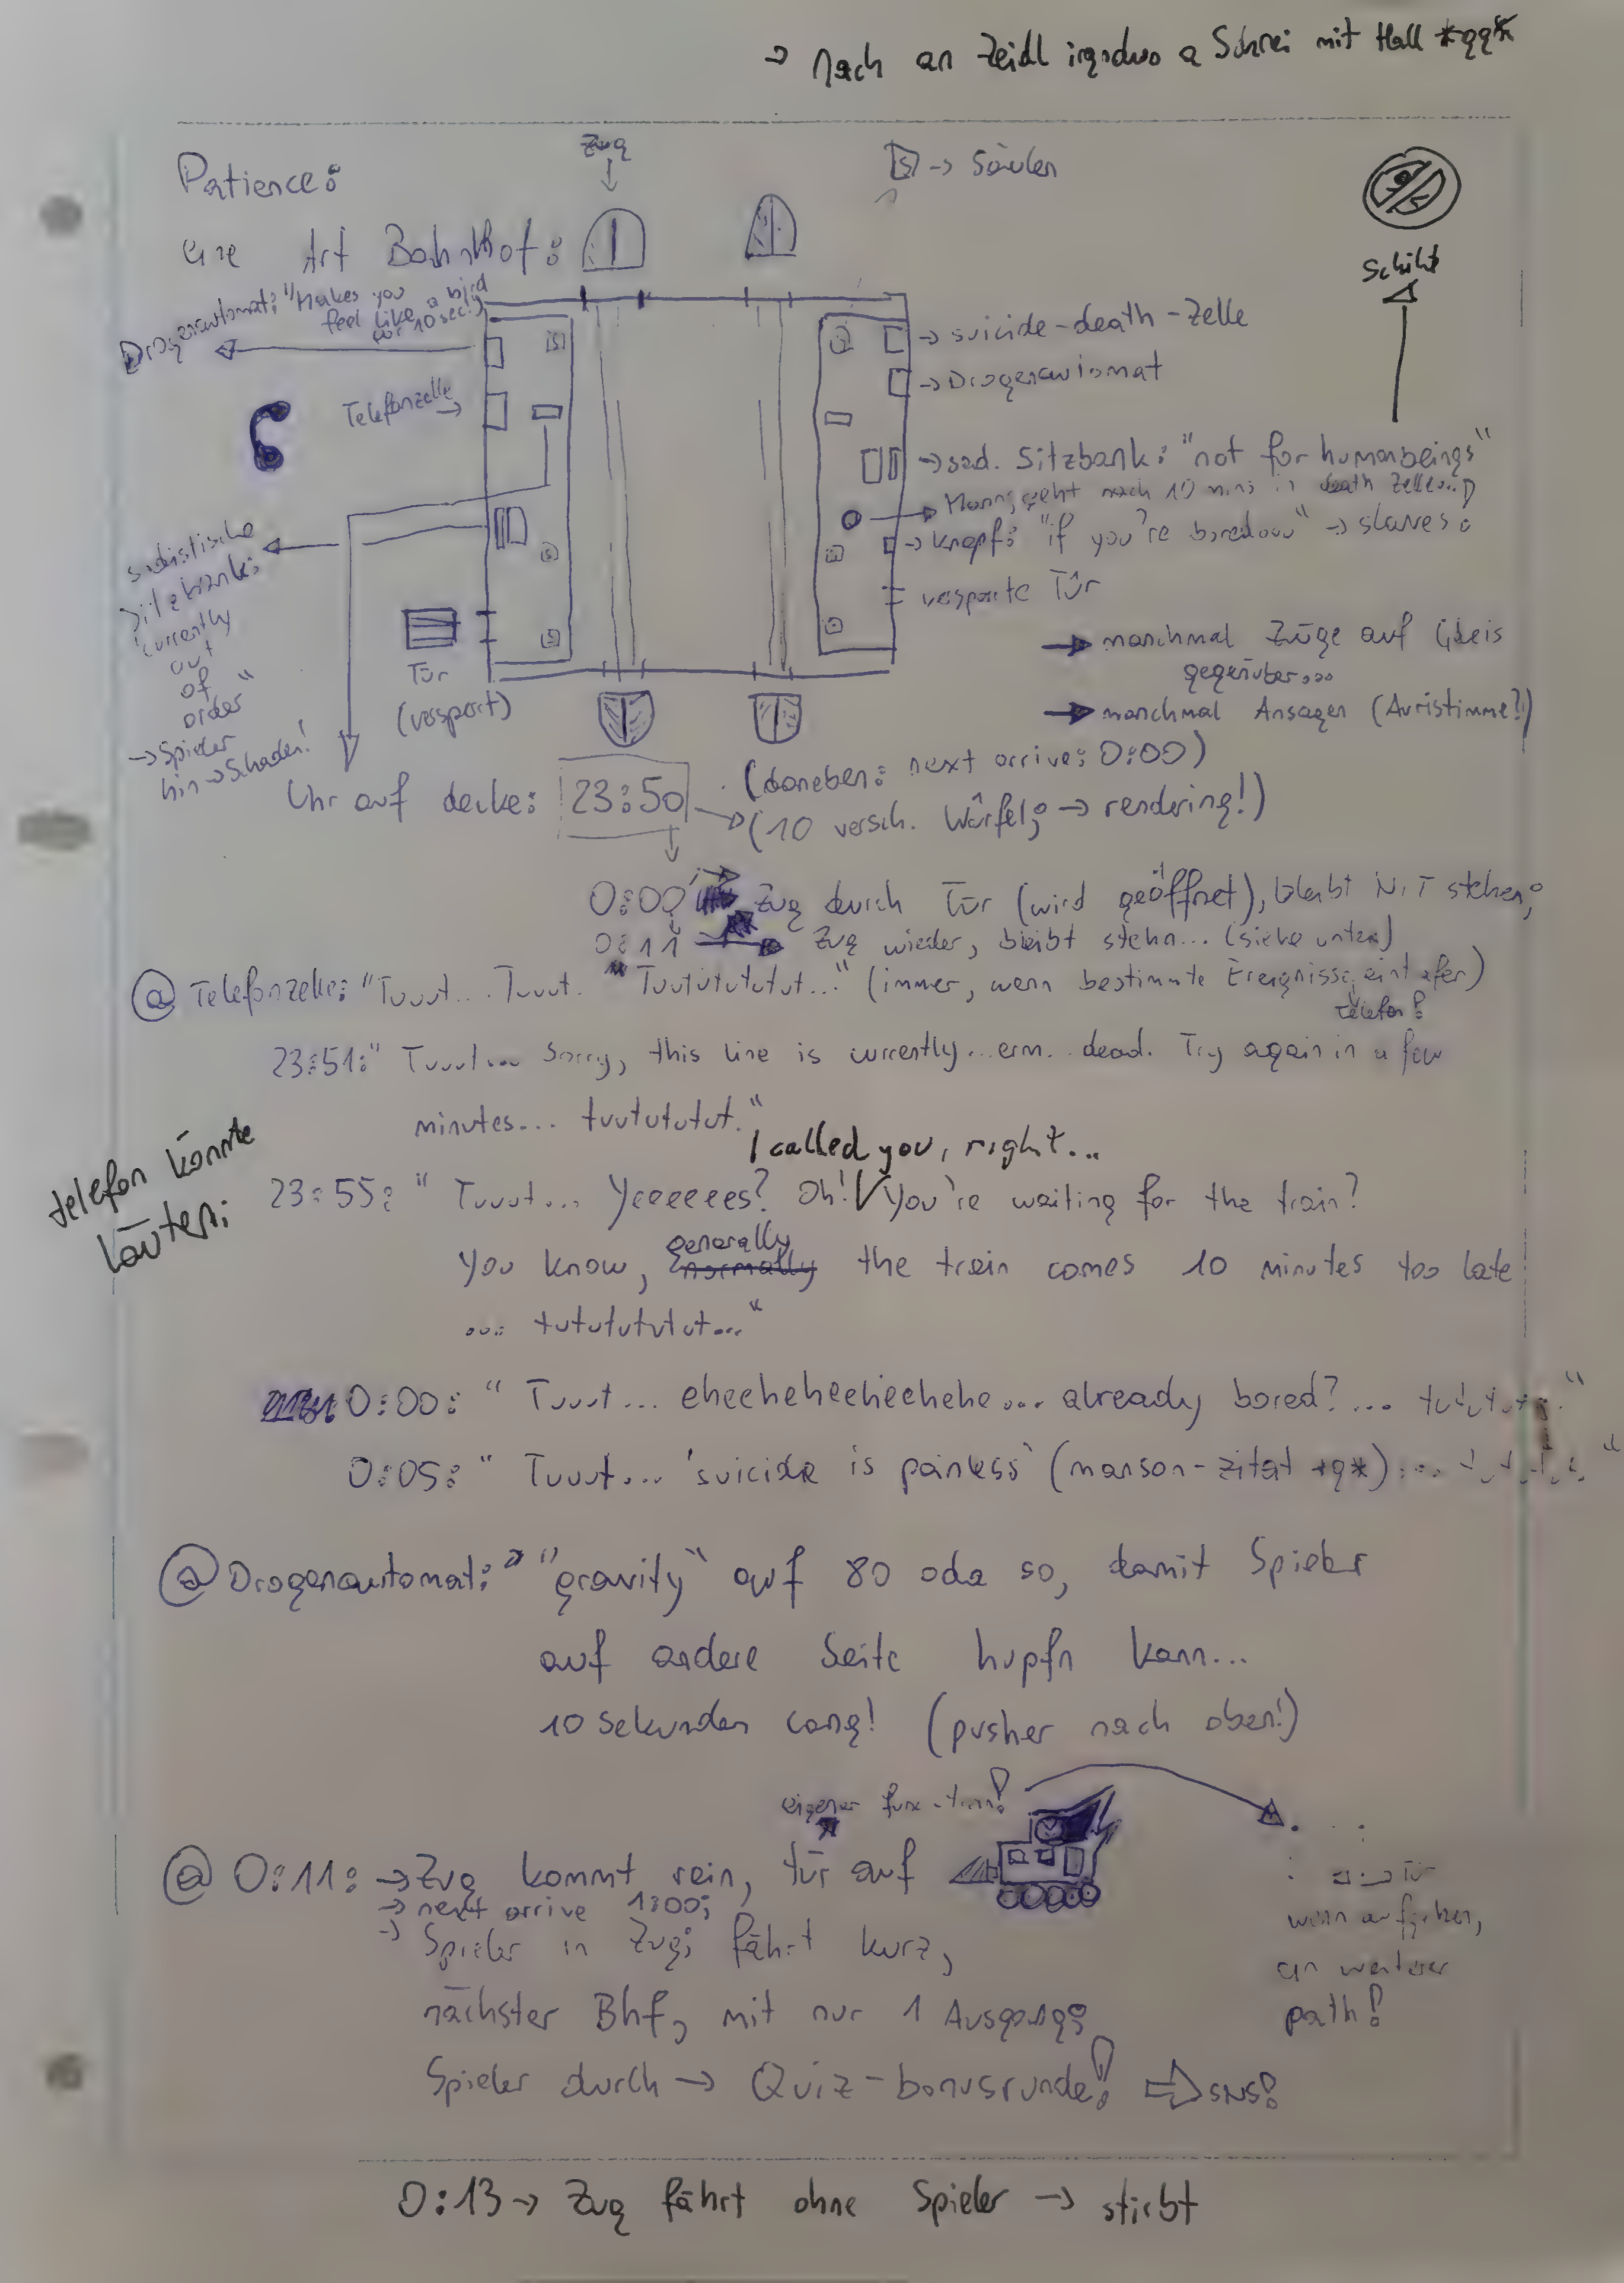 → Nach an Zeidl irgndwo a Schrei mit Hall *gg*
Patience:
Zug
[S] → Säulen
Eine Art Bahnhof:
Schild
Drogenautomat: "Makes you feel like a bird for 10 sec!"
→ suicide-death-Zelle
→ Drogenautomat
Telefonzelle →
→ sad. Sitzbank: "not for humanbeings"
→ Mann, geht nach 10 mins in death Zelle...
→ Knopf: "if you're bored..." → slaves
sadistische
Sitzbank:
"currently
out
of
order"
→ Spieler
hin → Schaden!
versperrte Tür
Tür
(versperrt)
→ manchmal Züge auf Gleis
gegenüber...
→ manchmal Ansagen (Avristimme?)
Uhr auf decke: 23:50
(daneben: next arrive: 0:00)
→ (10 versch. Würfel; → rendering!)
0:00 → Zug durch Tür (wird geöffnet), bleibt NIT stehen;
0:11 → Zug wieder, bleibt stehn... (siehe unten)
@ Telefonzelle: "Tuuut... Tuuut. Tuutututututut..." (immer, wenn bestimmte Ereignisse,
Telefon!
23:51: "Tuuut... Sorry, this line is currently...erm.. dead. Try again in a few
minutes... tuutututut."
telefon könnte
läuten;
I called you, right...
23:55: "Tuuut... Yeeeeees? Oh! √ You're waiting for the train?
You know, generally normally the train comes 10 minutes too late
... tutututututut..."
0:00: "Tuuut... eheeheheeheehehe... already bored?... tutututut."
0:05: "Tuuut... 'suicide is painless' (manson-zitat *g*)...
@ Drogenautomat: → "gravity" auf 80 oda so, damit Spieler
auf andere Seite hupfn kann...
10 Sekunden lang! (pusher nach oben!)
eigener func_train!
@ 0:11: → Zug kommt rein, tür auf
→ next arrive 1:00;
→ Spieler in Zug; fährt kurz,
nächster Bhf, mit nur 1 Ausgang;
Spieler durch → Quiz-bonusrunde! ⇒ SNS!
Tür
wenn aufgehen,
an weiterer
path!
0:13 → Zug fährt ohne Spieler → stirbt